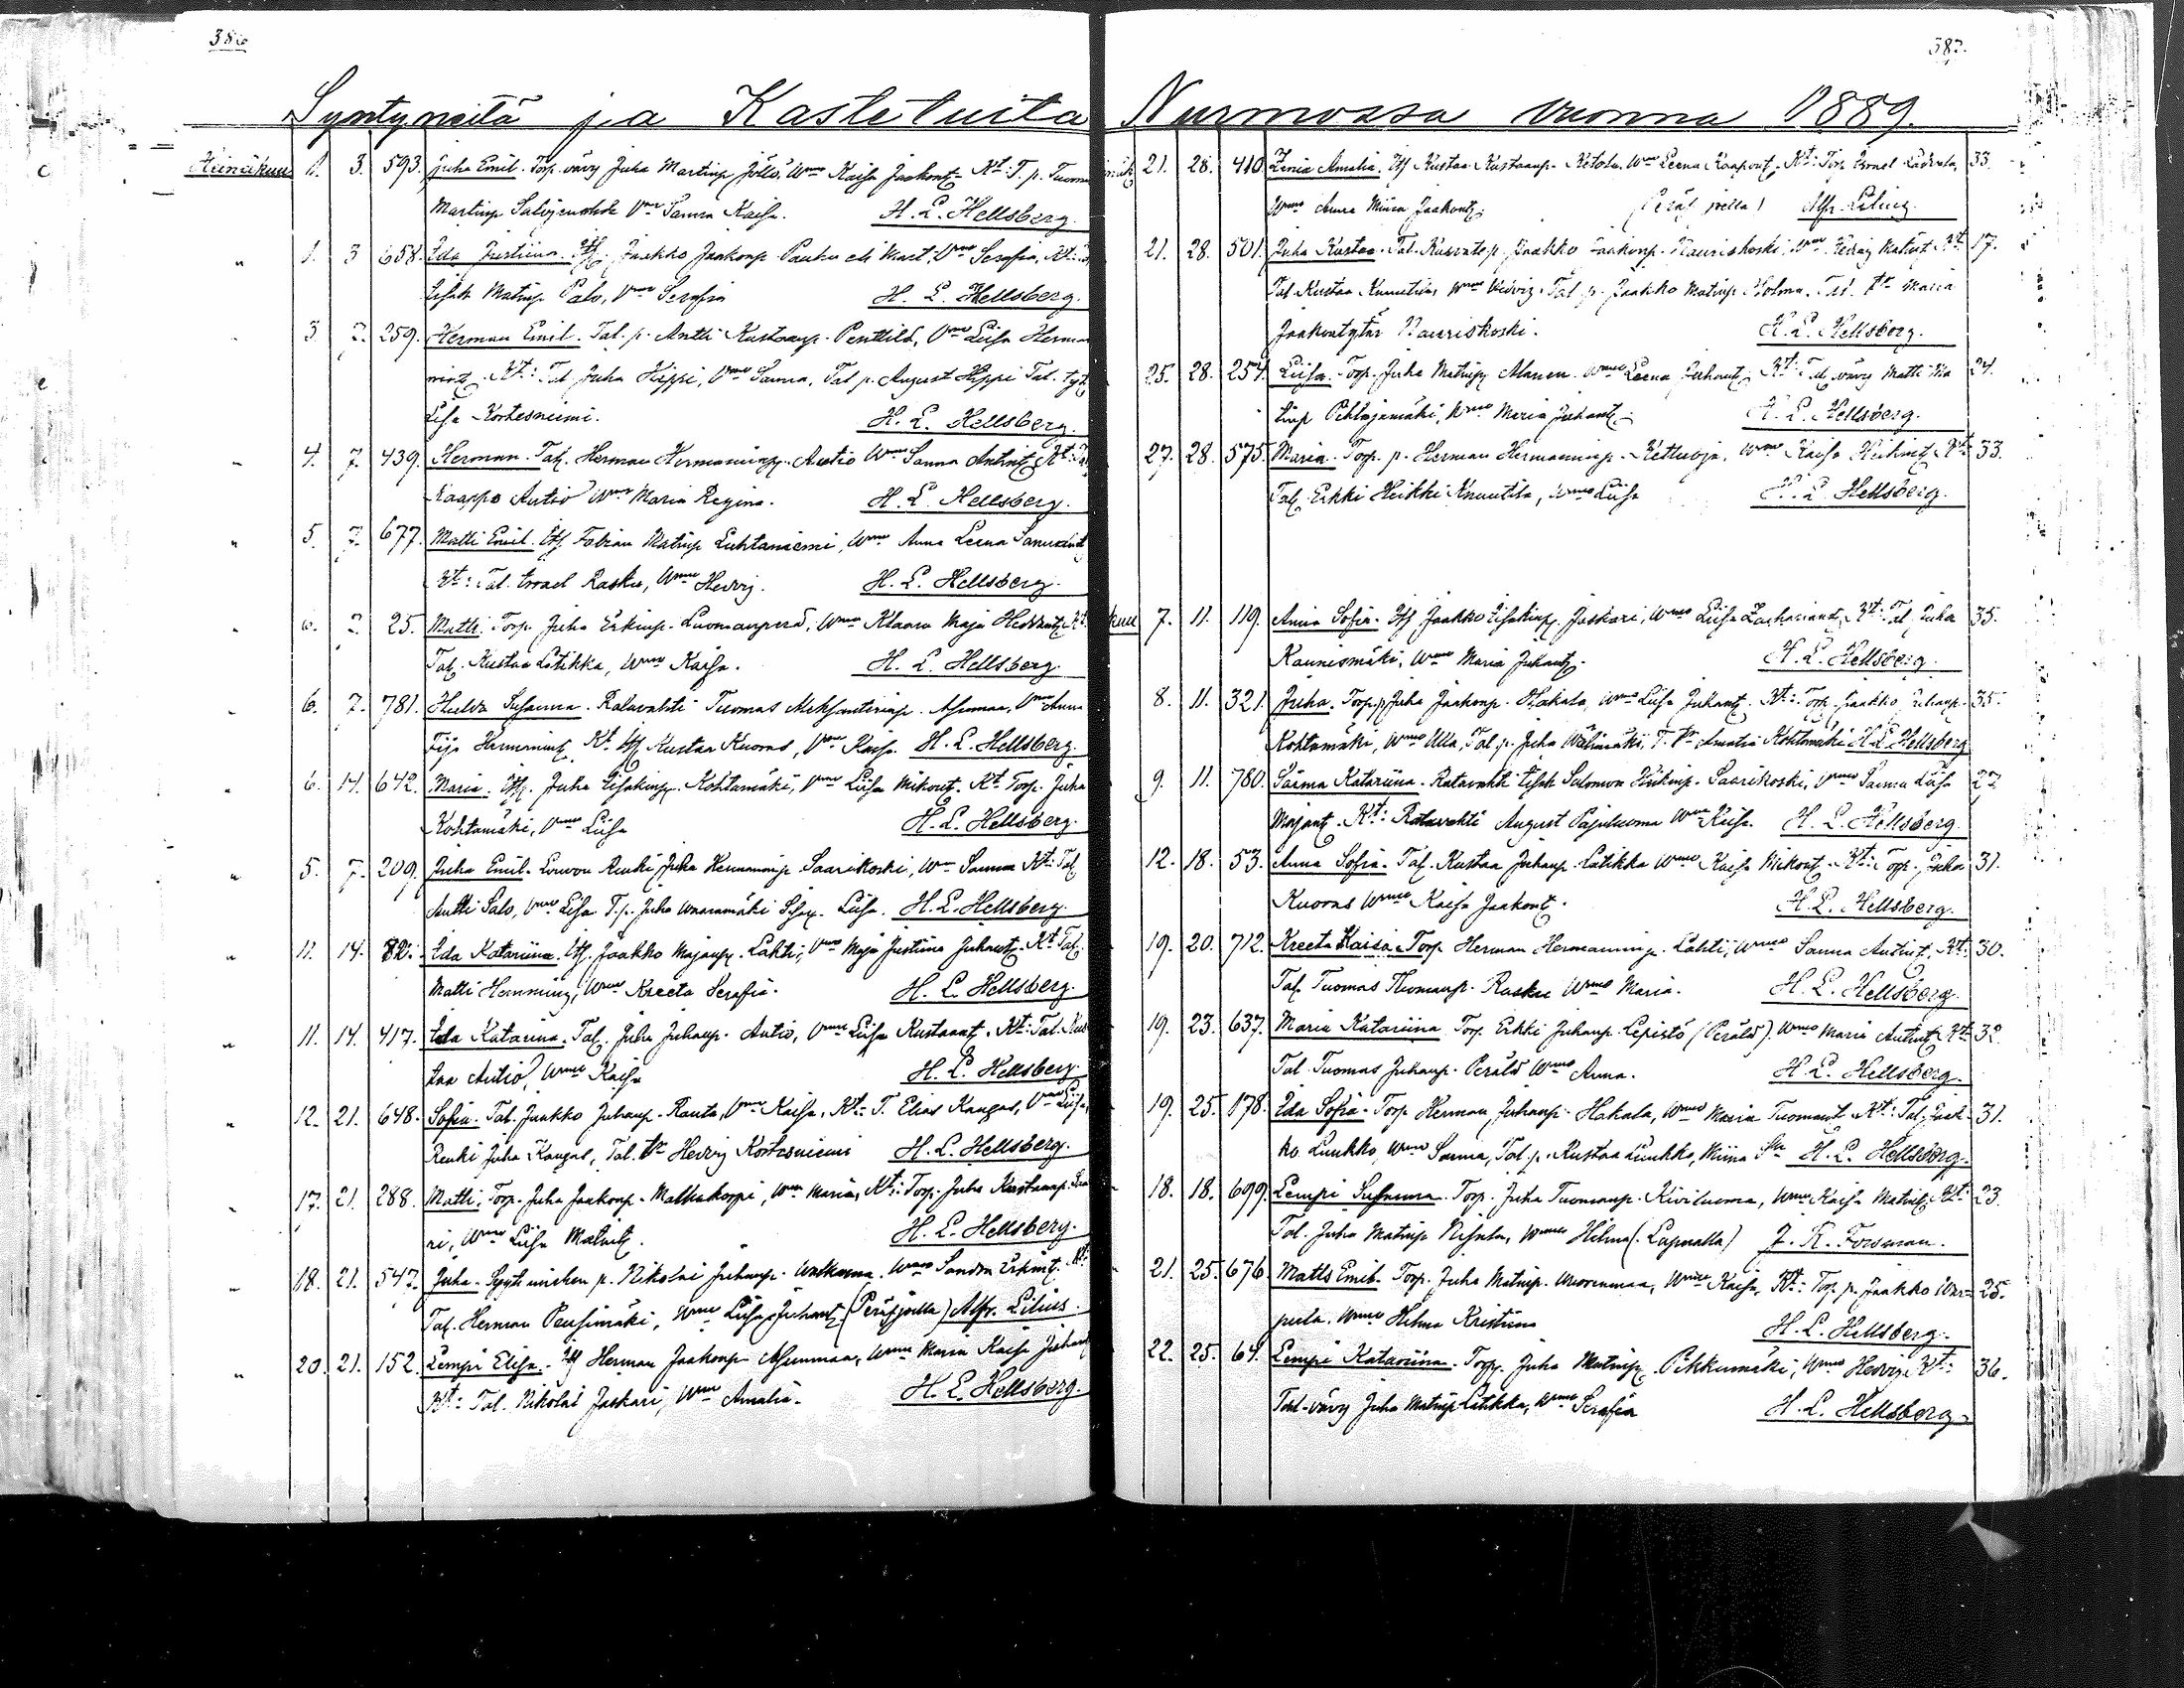 386
Syntyneitä ja Kastetuita
Heinäkuu 1. 3. 593. Juha Emil. Torp. vävy Juha Martinp. Jöllö, Wmo Kaisa Jaakont. Kt: T. p. Tuomas
Martinp. Vmo Sanna Kaisa. H. L. Hellsberg.
" 1. 3 658. Ida Justiina. Its. Jaakko Jaakonp. Vmo Serafia, Kt:
Iisak Matinp. Palo, Vmo Serafia H. L. Hellsberg.
3 7. 259. Herman Emil. Tal. p. Antti Kustaanp. Penttilä, Vmo Liisa Herman
nint. Kt: Tal. Juha Hippi, Vmo Sanna, Tal. p. August Hippi Tal. tyt.
Lisa Kortesniemi. H. L. Hellsberg.
" 4. 7. 439. Herman. Tal. Herman Hermanninp. Autio Wmo Sanna Antint. Kt: Tal.
Kaappo Autio Wmo Maria Regina. H. L. Hellsberg.
" 5. 7. 677. Matti Emil. Its. Fabian Matinp. Luhtaniemi, Wmo Anna Leena
Kt: Tal. Israel Rasku, Wmo Hedvig. H. L. Hellsberg.
" 6. 7. 25. Matti. Torp. Juha Erkinp. Luomanperä, Wmo Klaara Maja Heikkint. Kt:
Tal. Kustaa Lötikkä, Wmo Kaisa. H. L. Hellsberg.
" 6. 7. 781. Hulda Susanna. Ratavahti Tuomas Aleksanterinp. Asunmaa, Vmo Anna
Fija Hermanint. Kt. Its. Kustaa Kuoras, Vmo Kaisa. H. L. Hellsberg.
" 6. 14. 642. Maria. Its. Juha Iisakinp. Kohtamäki, Vmo Liisa Mikont. Kt. Torp. Juha
Kohtamäki, Vmo Liisa H. L. Hellsberg.
" 5. 7. 209. Juha Emil. Renki Juha Hermaninp. Saarikoski, Wmo Sanna Kt: Tal.
Antti Salo, Vmo Lisa T. p. Juho Liisa. H. L. Hellsberg.
" 11. 14. 82. Ida Katariina. Its. Jaakko Majanp. Lahti, Vmo Maja Justiina Juhant. Kt. Tal.
Matti Hemming, Wmo Kreeta Serafia. H. L. Hellsberg.
" 11. 14. 417. Ida Katarina. Tal. Juha Juhanp. Autio, Vmo Liisa Kustaant. Kt: Tal. Kus
taa Autio, Wmo Kaisa H. L. Hellsberg.
" 12. 21. 648. Sofia. Tal. Jaakko Juhanp. Ranta, Vmo Kaisa, Kt: T. Elias Kangas, Vmo Liisa,
Renki Juha Kangas, Tal. tr. Hedvig Kortesniemi H. L. Hellsberg.
" 17. 21. 288. Matti. Torp. Juha Jaakonp. Matkakorpi, Wmo Maria, Kt: Torp. Juha Kustaanp.
ri, Wmo Liisa Matint. H. L. Hellsberg.
" 18. 21. 547. Juha. p. Nikolai Juhanp. Wmo Sandra Erkint. Kt:
Tal. Herman Pensimäki, Wmo Liisa Juhant. (Peräsjoella) Alfr. Lilius.
" 20. 21. 152. Lempi Elisa. Its. Herman Jaakonp. Asunmaa, Wmo Maria Kaisa Juhant
Kt: Tal. Nikolai Jaskari, Wmo Amalia. H. L. Hellsberg.
387.
Nurmossa vuonna 1889.
21. 28. 410. Zenia Amalia. Its. Kustaa Kustaanp. Ketola, Wmo Leena Kaapont. Kt: Torp. Israel 33.
Wmo Anna Miina Jaakont. (Peräsjoella) Alfr. Lilius.
21. 28. 501. Juha Kustaa. Tal. p. Jaakko Jaakonp. Nauriskoski, Wmo Hedvig Matint. Kt: 17.
Tal. Kustaa Kuuttinen Wmo Hedvig. Tal. p. Jaakko Matinp. Holma, Tal. tr. Maria
Jaakontytär Nauriskoski. H. L. Hellsberg.
25. 28. 254. Liisa. Torp. Juha Matinp. Alanen. Wmo Leena Juhant. Kt: Tal. vävy Matti Ma 24.
tinp. Pihlajamäki, Wmo Maria Juhant. H. L. Hellsberg.
27. 28. 575. Maria. Torp. p. Herman Hermaninp. Kettuoja, Wmo Kaisa Heikint. Kt: 33.
Tal. Erkki Heikki Knuutila, Wmo Liisa H. L. Hellsberg.
kuu 7. 11. 119. Anna Sofia. Its. Jaakko Iisakinp. Jaskari, Wmo Liisa Zachariant. Kt: Tal. Juha 35.
Kaunismäki, Wmo Maria Juhant. H. L. Hellsberg.
8. 11. 321. Juha. Torp. p. Juha Jaakonp. Hakala, Wmo Liisa Juhant. Kt: Torp. Jaakko Juhanp. 35.
Kohtamäki, Wmo Ulla, Tal. p. Juha Välimäki, T. tr. Amalia Kohtamäki H. L. Hellsberg
9. 11. 780. Saima Katariina. Ratavahti Iisak Salomon Heikinp. Saarikoski, Vmo Sanna Liisa 27.
Majant. Kt: Ratavahti August Pajuluoma Wmo Kaisa. H. L. Hellsberg.
12. 18. 53. Anna Sofia. Tal. Kustaa Juhanp. Lötikkä Wmo Kaisa Mikont. Kt: Torp. Juha 31.
Kuoras Wmo Kaisa Jaakont. H. L. Hellsberg.
19. 20. 712. Kreeta Kaisa. Torp. Herman Hermaninp. Lahti, Wmo Sanna Antint. Kt: 30.
Tal. Tuomas Thomanp. Raskue Wmo Maria. H. L. Hellsberg.
19. 23. 637. Maria Katariina. Torp. Erkki Juhanp. Lepistö (Perälä). Wmo Maria Antint. Kt: 32.
Tal. Tuomas Juhanp. Perälä Wmo Anna. H. L. Hellsberg.
19. 25. 178. Ida Sofia. Torp. Herman Juhanp. Hakala, Wmo Maria Tuomant. Kt: Tal. Jaak- 31.
ko Luukko, Wmo Sanna, Tal. p. Kustaa Luukko, Miina H. L. Hellsberg.
18. 18. 699. Lempi Susanna. Torp. Juha Tuomanp. Kiviluoma, Wmo Kaisa Matint. Kt: 23.
Tal. Juha Matinp. Wmo Hilma (Lapualla) J. R. Forsman.
21. 25. 676 Matts Emil. Torp. Juha Matinp. Wuorenmaa, Wmo Kaisa, Kt: Torp. p. Jaakko 25.
Wmo Hilma Kristiina H. L. Hellsberg.
22. 25. 64. Lempi Katariina. Torp. Juha Matinp. Pihkumäki, Wmo Hedvig. Kt: 36.
Tal. vävy Juha Matinp. Lötikkä, Wmo Serafia H. L. Hellsberg.